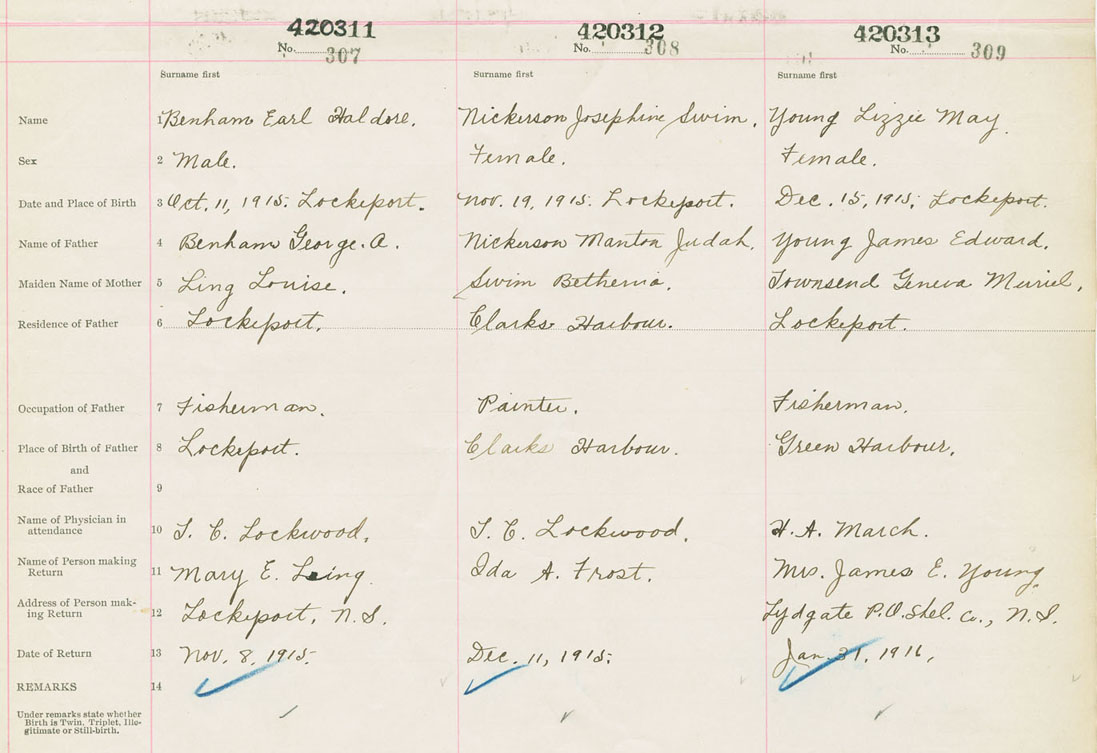 420311 420312 420313
No. 307 No. 308 No. 309
Surname first Surname first Surname first
Name 1 Benham Earl Haldore. Nickerson Josephine Swim. Young Lizzie May.
Sex 2 Male. Female. Female.
Date and Place of Birth 3 Oct. 11, 1915. Lockeport. Nov. 19, 1915. Lockeport. Dec. 15, 1915, Lockeport.
Name of Father 4 Benham George. A. Nickerson Manton Judah. Young James Edward.
Maiden Name of Mother 5 Ling Louise. Swim Bethenia. Townsend Geneva Muriel.
Residence of Father 6 Lockeport. Clarks Harbour. Lockeport.
Occupation of Father 7 Fisherman. Painter. Fisherman.
Place of Birth of Father 8 Lockeport. Clarks Harbour. Green Harbour.
and
Race of Father 9
Name of Physician in
attendance 10 T. C. Lockwood. T. C. Lockwood. H. A. March.
Name of Person making
Return 11 Mary E. Ling Ida A. Frost. Mrs. James E. Young.
Address of Person mak-
ing Return 12 Lockeport, N.S. Lydgate P.O. Shel. Co., N.S.
Date of Return 13 Nov. 8, 1915. Dec. 11, 1915. Jan. 31, 1916.
REMARKS 14
Under remarks state whether
Birth is Twin, Triplet, Ille-
gitimate or Still-birth.